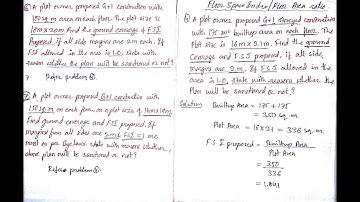 ⑥ A plot owner proposed G+1 construction with
150 sq.m area on each floor. The plot size is
10m x 20m. Find the ground coverage & FSI
Proposed. If all side margins are 2m each. If
FSI allowed in the area is 1.0. State with
reason whether the plan will be sanctioned or not?
Refer problem ⑧.
⑦ A plot owner proposed G+1 construction with
150 sq.m on each floor, on a plot of 10m x 18m
Find ground coverage and FSI proposed. If
margins from all sides are 2m & FSI = 1 are
must as per byelaws. state with reason whether
above plan will be sanctioned or not?
Refer problem ⑧.
Floor Space Index / Floor Area ratio
⑧ A plot owner proposed G+1 storeyed construction
with 175 m² builtup area on each floor. The
Plot size is 16m x 21m. Find the ground
Coverage and F.S.I proposed, if all side
margins are 2m. If F.S.I allowed in the
area is 1.0, state with reason whether the
Plan will be sanctioned or not?
Solution Builtup Area = 175 + 175
= 350 sq.m.
Plot Area = 16 x 21 = 336 sq.m.
F.S.I proposed = Builtup Area
Plot Area
= 350
336
= 1.041